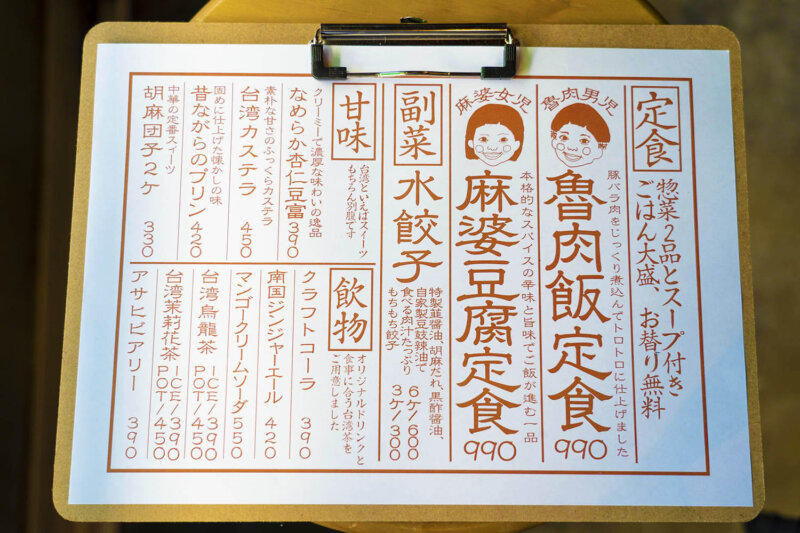 定食
惣菜2品とスープ付き
ごはん大盛、お替り無料
魯肉男児
豚バラ肉をじっくり煮込んでトロトロに仕上げました
魯肉飯定食
990
麻婆女児
本格的なスパイスの辛味と旨味でご飯が進む一品
麻婆豆腐定食
990
副菜
水餃子
特製韮醤油、胡麻だれ、黒酢醤油、
自家製豆豉辣油で
食べる肉汁たっぷり
もちもち餃子
6ケ/600
3ケ/300
甘味
台湾といえばスイーツ
もちろん別腹です
クリーミーで濃厚な味わいの逸品
なめらか杏仁豆富
390
素朴な甘さのふっくらカステラ
台湾カステラ
450
固めに仕上げた懐かしの味
昔ながらのプリン
420
中華の定番スイーツ
胡麻団子2ケ
330
飲物
オリジナルドリンクと
食事に合う台湾茶を
ご用意しました
クラフトコーラ
390
南国ジンジャーエール
420
マンゴークリームソーダ
550
台湾烏龍茶
ICE/390
POT/450
台湾茉莉花茶
ICE/390
POT/450
アサヒビアリー
390